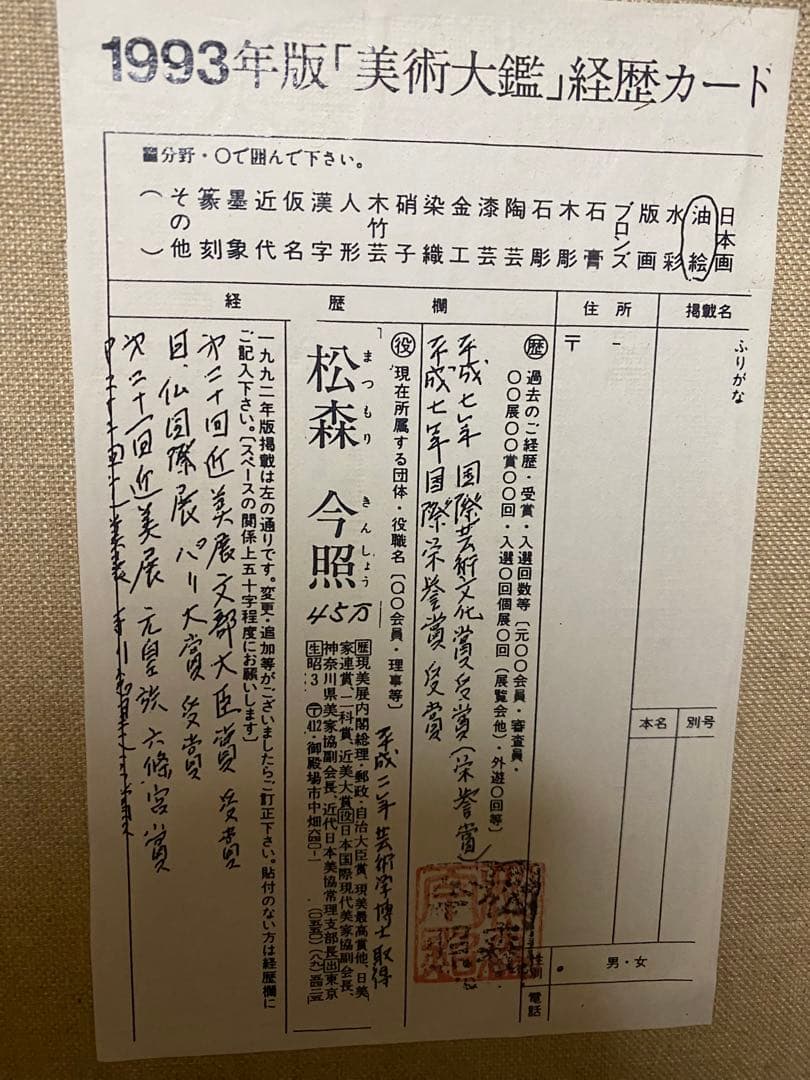 1993年版「美術大鑑」経歴カード
■分野・〇で囲んで下さい。
日本画
油絵
水彩
版画
ブロンズ
石膏
木彫
石彫
陶芸
漆芸
金工
染織
硝子
木竹芸
人形
漢字
仮名
近代
墨象
篆刻
その他
（　）
掲載名
ふりがな
本名
別号
住所
〒 -
男・女
性別
電話
経歴欄
歴 過去のご経歴・受賞・入選回数等〔元〇〇会員・審査員・
〇〇展〇〇賞〇〇回・入選〇回個展〇回（展覧会他）・外遊〇回等〕
平成七年 国際芸術文化賞受賞（栄誉賞）
平成七年国際栄誉賞 受賞
役 現在所属する団体・役職名〔〇〇会員・理事等〕
平成二年 芸術学博士取得
松森 今照
まつもり きんしょう
45万
歴現美展内閣総理・郵政・自治大臣賞、現美最高賞他、日美
家連賞、二科賞、近美大賞役日本国際現代美家協副会長、
神奈川県美家協副会長、近代日本美協常理支部長出東京
生昭3 〒412・御殿場市中畑六四〇-一
一九九二年版掲載は左の通りです。変更・追加等がございましたらご訂正下さい。貼付のない方は経歴欄に
ご記入下さい。〔スペースの関係上五十字程度にお願いします〕
第二十回近美展文部大臣賞 受賞
日、仏国際展 パリ大賞 受賞
第二十一回近美展 元皇族六條宮賞